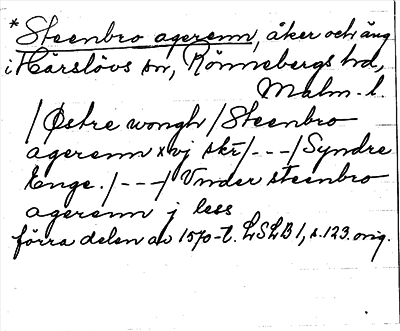 *Steenbro agerenn, åker och äng
i Härslövs sn, Rönnebergs hd,
Malm. l.
/Østre wongh/Steenbro
agerenn xvj skr/---/Syndre
Enge./---/Vnder steenbro
agerenn j less
förra delen av 1570-t. LSLB 1, s. 123. orig.